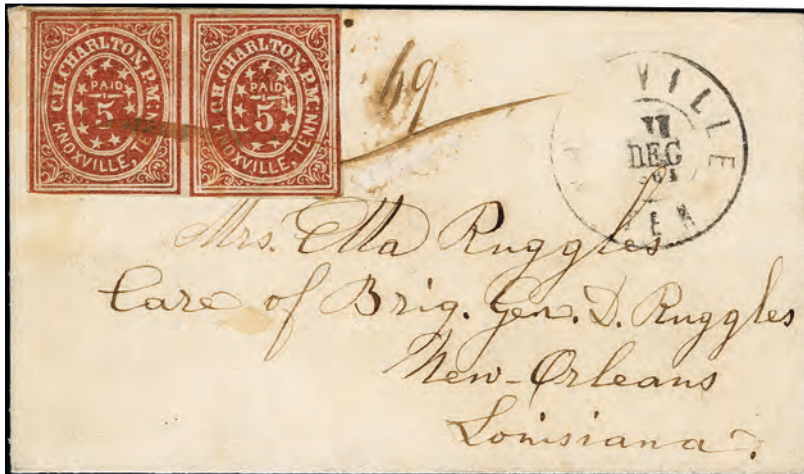 C.H. CHARLTON, P.M.
PAID
5
KNOXVILLE, TENN.
C.H. CHARLTON, P.M.
PAID
5
KNOXVILLE, TENN.
VILLE
11
DEC
Mrs. Ella Ruggles
Care of Brig. Gen. D. Ruggles
New-Orleans
Louisiana.